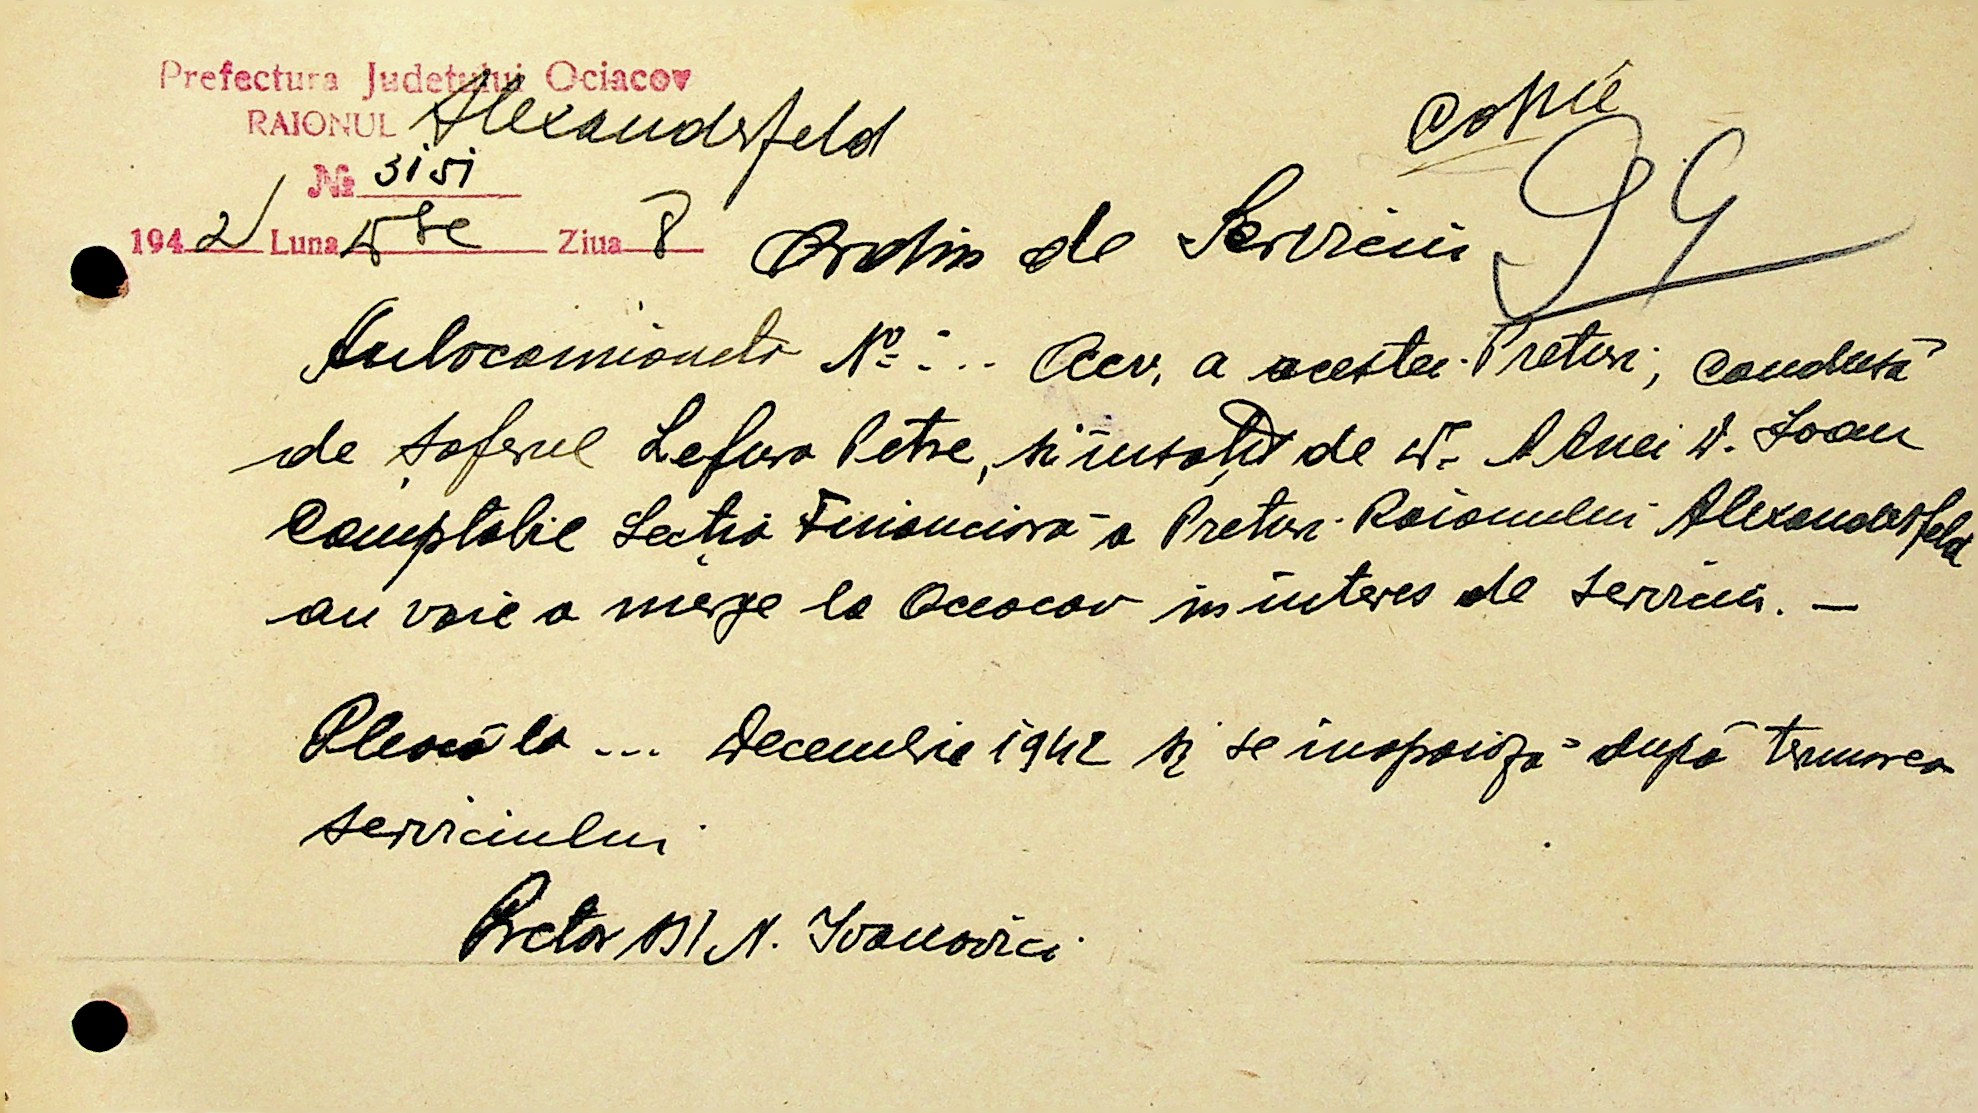 Prefectura Județului Ociacov
RAIONUL Alexanderfeld
copie
№ 3151
94
1942 Luna Xbe Ziua 8
Ordin de Serviciu
Autocamioneta No= ... Ocv. a acestei Preturi, condusă
de șoferul Petre, și însoțit de D. Ioan
Comptabil Secția Financiară a Preturi Raionului Alexanderfeld
au voie a merge la Oceacov in interes de serviciu. —
Pleacă la ... Decembrie 1942 și se inapoiază după termarea
serviciului
Pretor N. Ivanovici